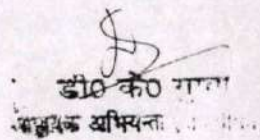 डी0 के0 गुप्ता
सहायक अभियन्ता